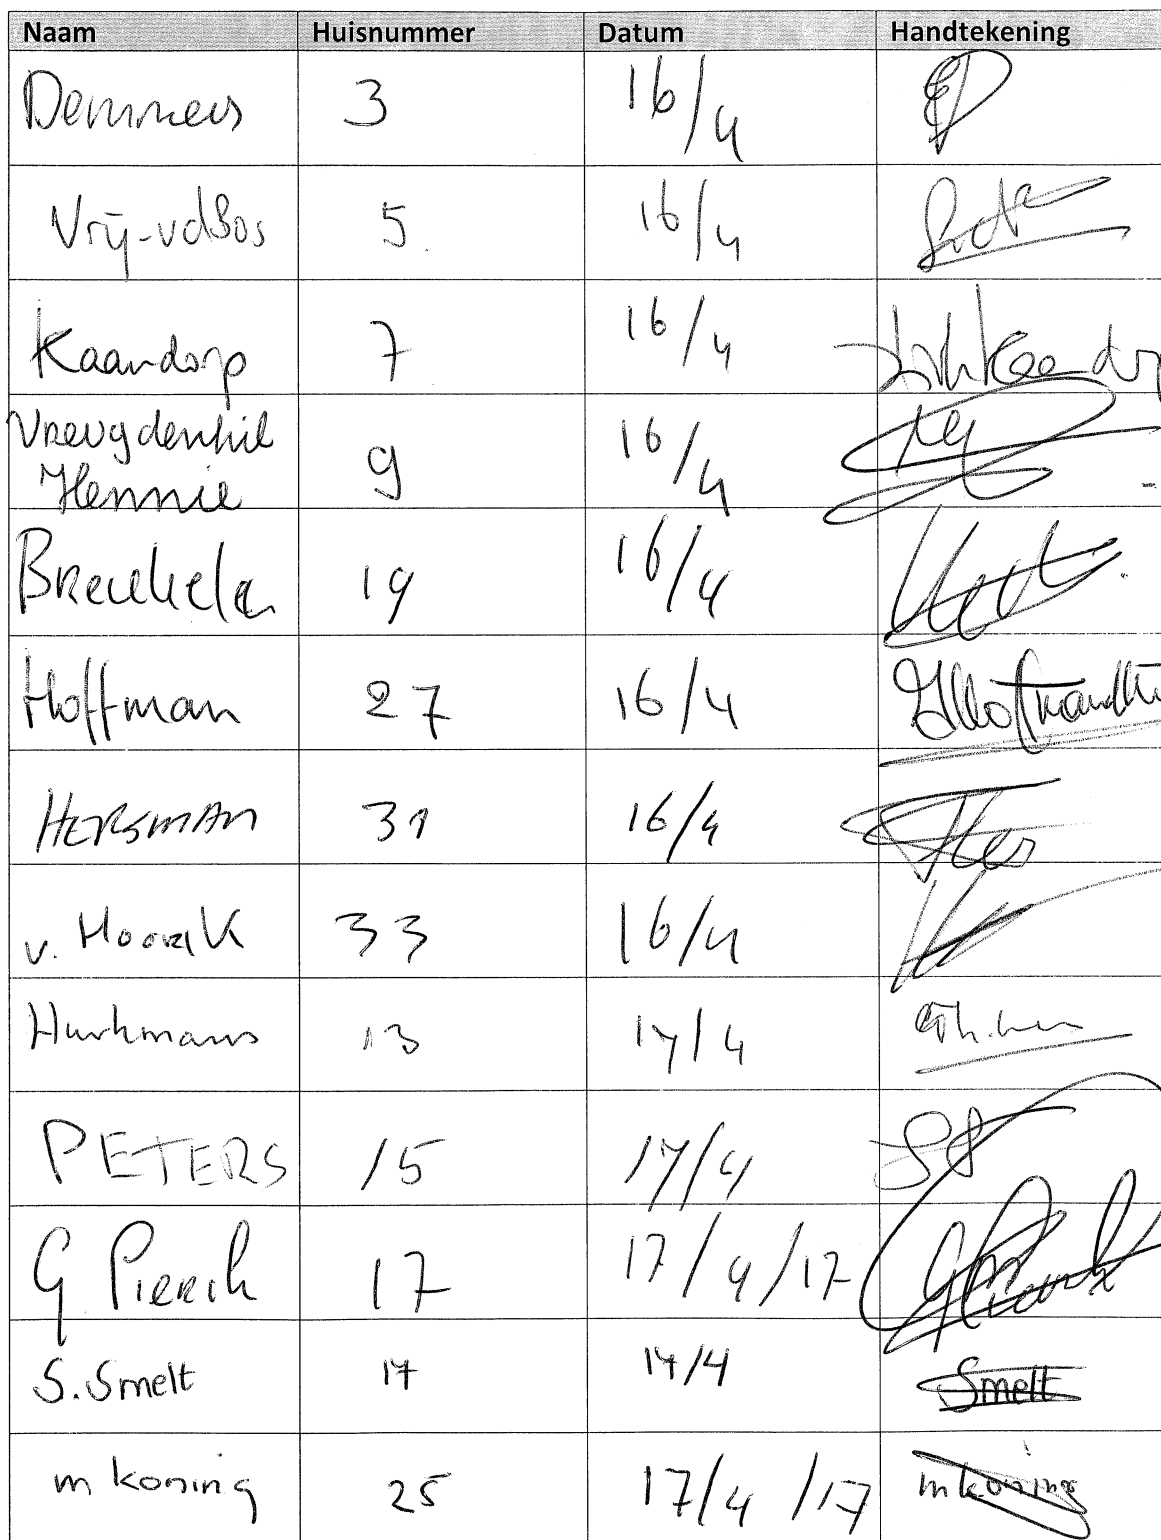 Naam Huisnummer Datum Handtekening
Demmers 3 16/4
Vrij-vdBos 5 16/4
Kaandorp 7 16/4 Kaandorp
Vreugdenhil
Hennie 9 16/4
Breukelen 19 16/4
Hoffman 27 16/4
HERSMAN 31 16/4
v. Hoorik 33 16/4
Hurkmans 13 17/4
PETERS 15 17/4
G Pierik 17 17/4/17
S. Smelt 17 17/4 Smelt
m koning 25 17/4/17 m koning